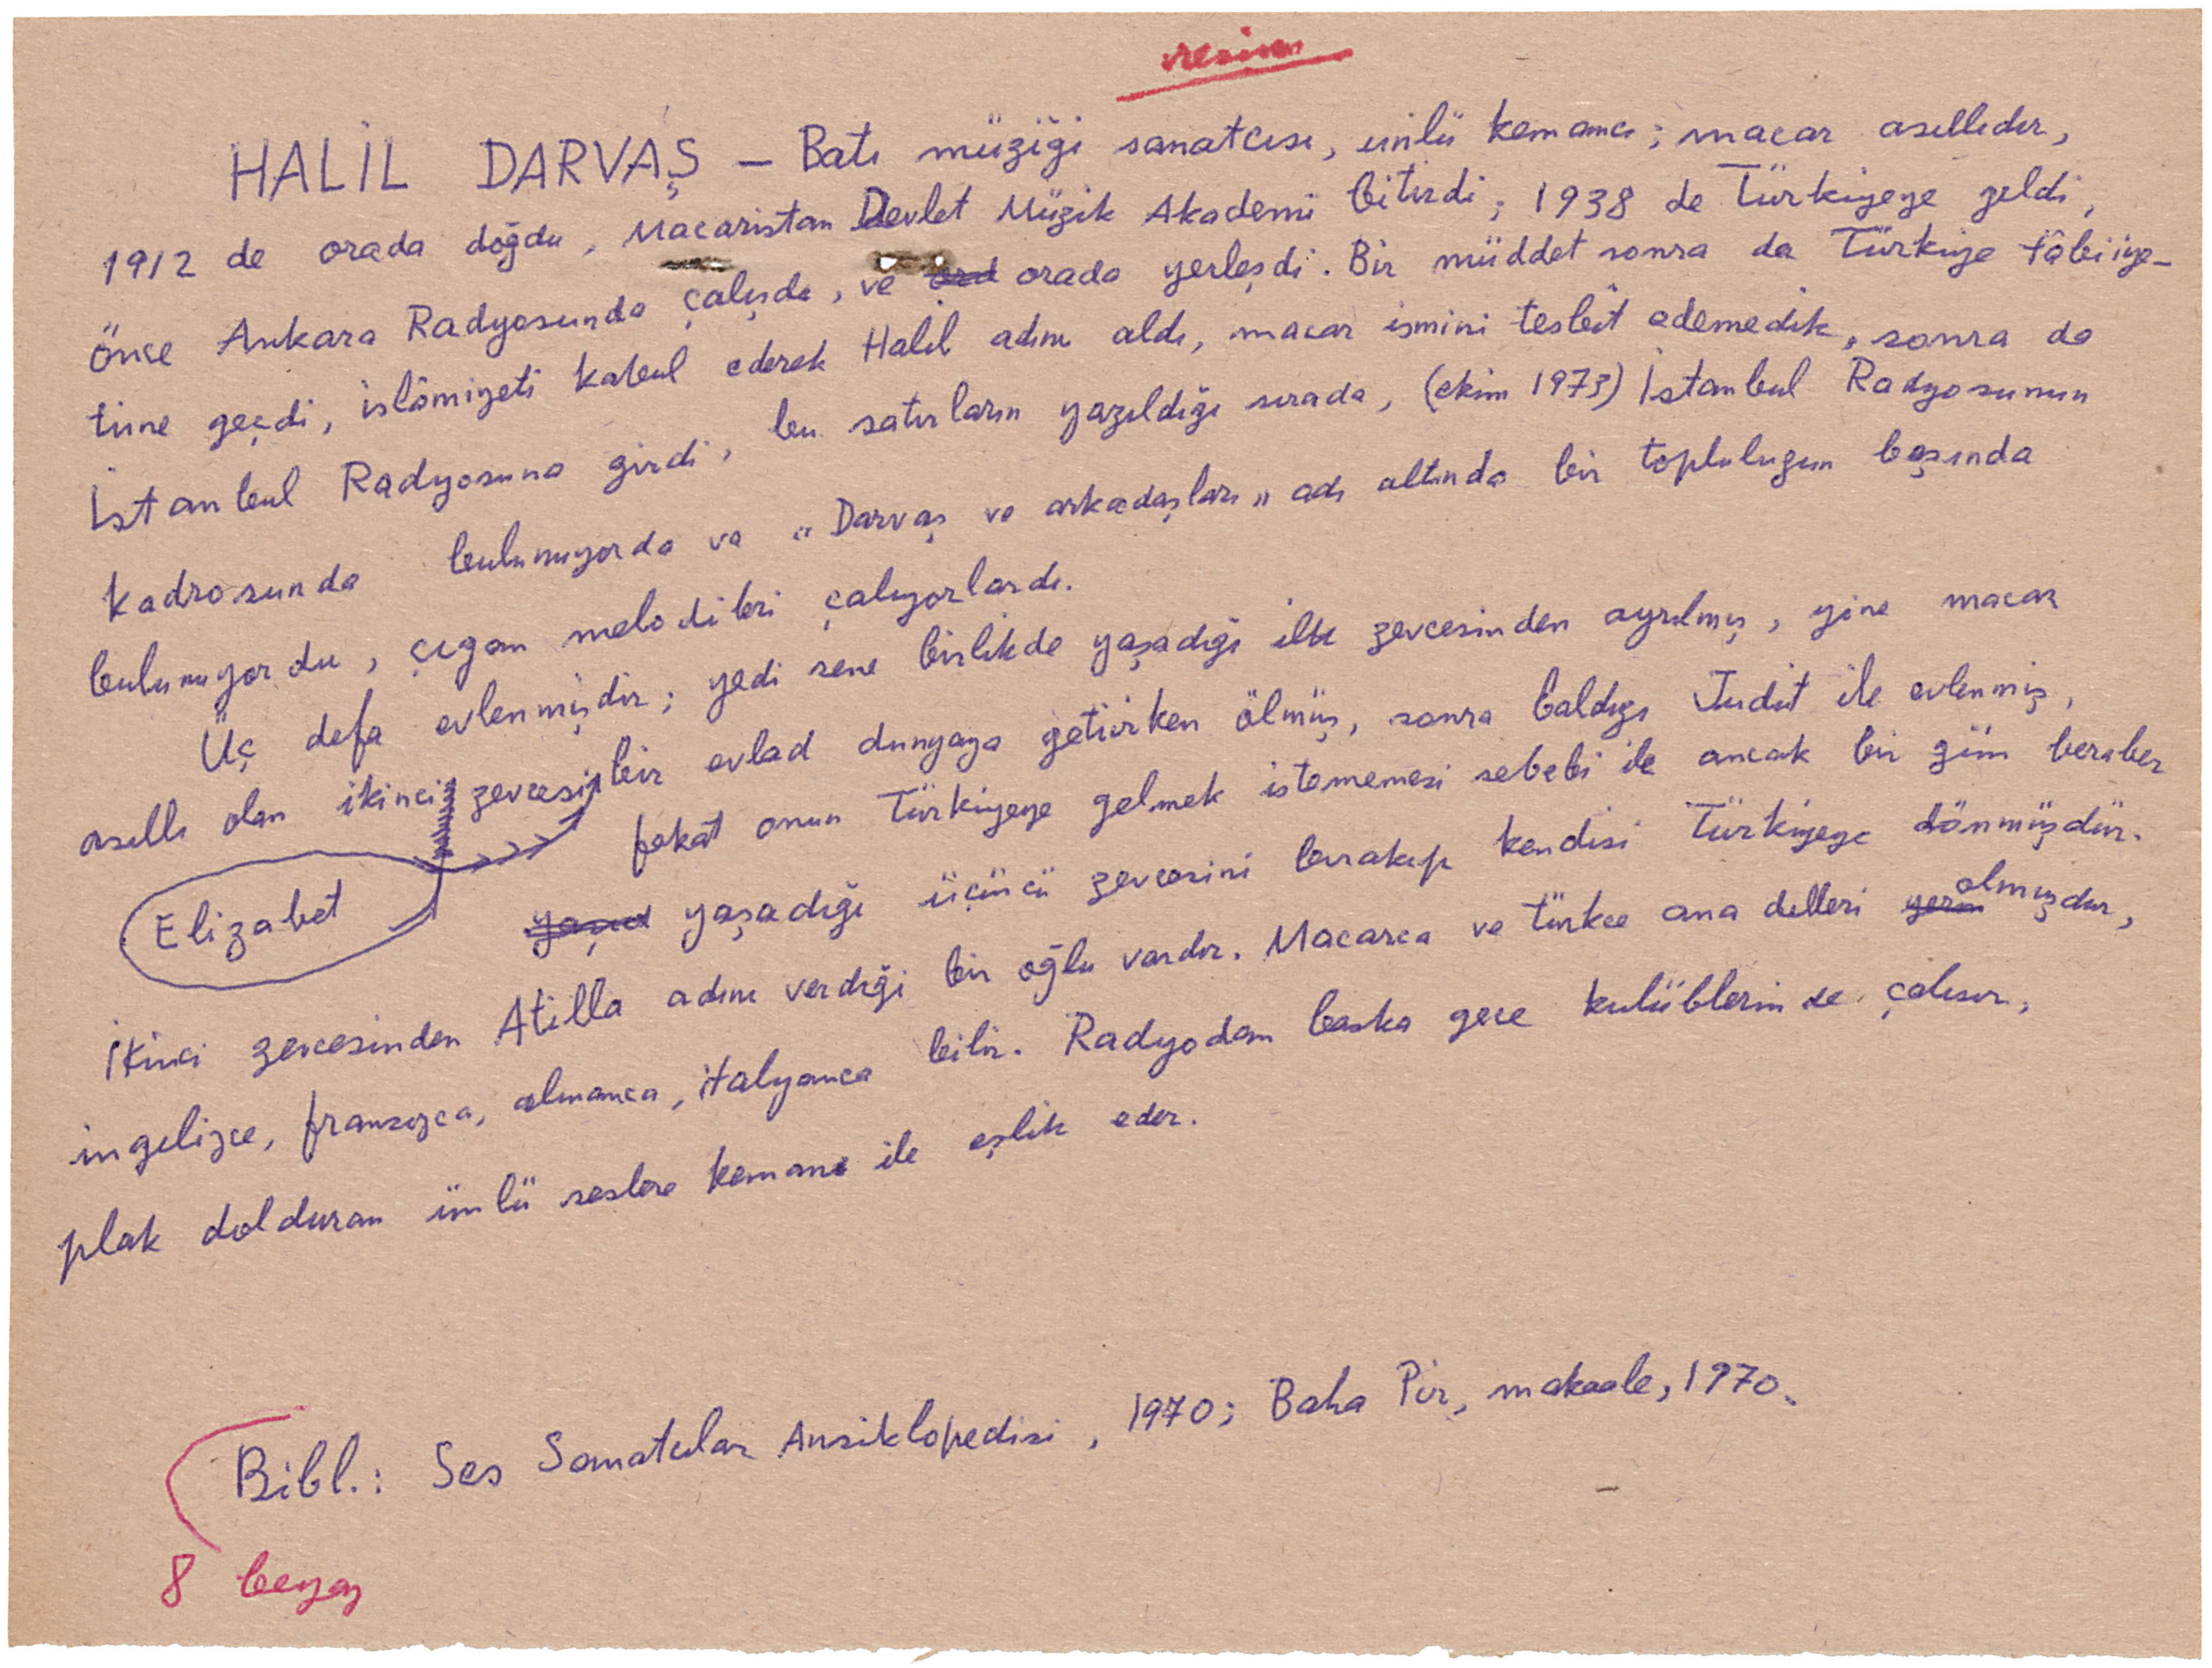 resim
HALİL DARVAŞ — Batı müziği sanatcısı, ünlü kemancı; macar asıllıdır,
1912 de orada doğdu, Macaristan Devlet Müzik Akademi bitirdi; 1938 de Türkiyeye geldi,
önce Ankara Radyosunda çalışdı, ve ord orada yerleşdi. Bir müddet sonra da Türkiye tâbiiye-
tine geçdi, islâmiyeti kabul ederek Halil adını aldı, macar ismini tesbit edemedik, sonra da
İstanbul Radyosuna girdi, bu satırların yazıldığı sırada, (ekim 1973) İstanbul Radyosunun
kadrosunda bulunuyordu ve "Darvaş ve arkadaşları" adı altında bir topluluğun başında
bulunuyordu, çigan melodileri çalıyorlardı.
Üç defa evlenmişdir; yedi sene birlikde yaşadığı ilk zevcesinden ayrılmış, yine macar
asıllı olan ikinci zevcesi bir evlad dunyaya getirken ölmüş, sonra baldızı Judit ile evlenmiş,
Elizabet
fakat onun Türkiyeye gelmek istememesi sebebi ile ancak bir gün beraber
yaşad yaşadığı üçüncü zevcesini bırakıp kendisi Türkiyeye dönmüşdür.
İkinci zevcesinden Atilla adını verdiği bir oğlu vardır. Macarca ve türkce ana dilleri yerin olmuşdur,
ingelizce, fransızca, almanca, italyanca bilir. Radyodan baska gece kulüblerinde çalışır,
plak dolduran ünlü seslere kemanı ile eşlik eder.
Bibl.: Ses Sanatcılar Ansiklopedisi, 1970; Baha Pir, makaale, 1970.
8 beyaz